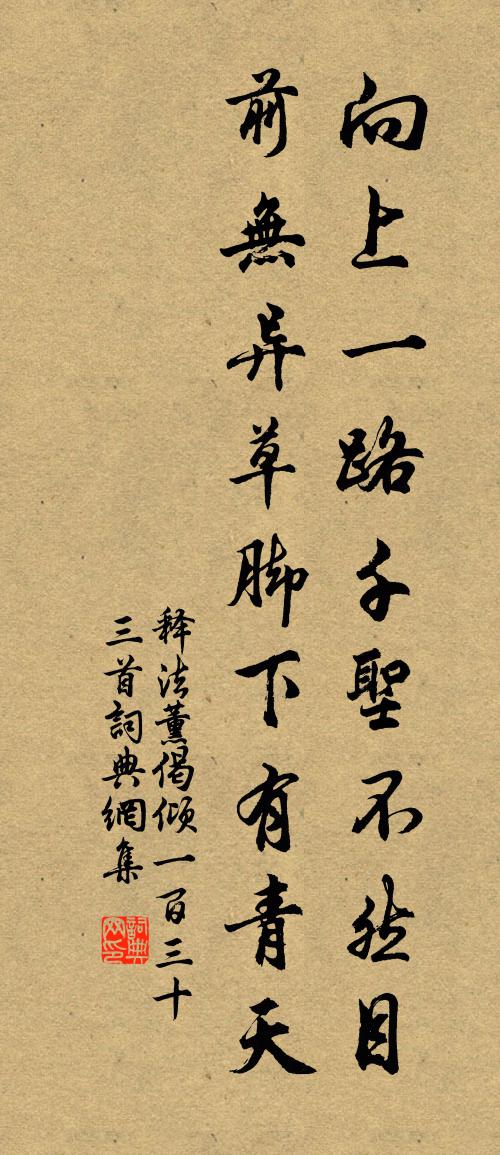 向上一路千聖不然目
前無异草脚下有青天
释法薰偈倾一百三十
三首詞典網集
詞典網印